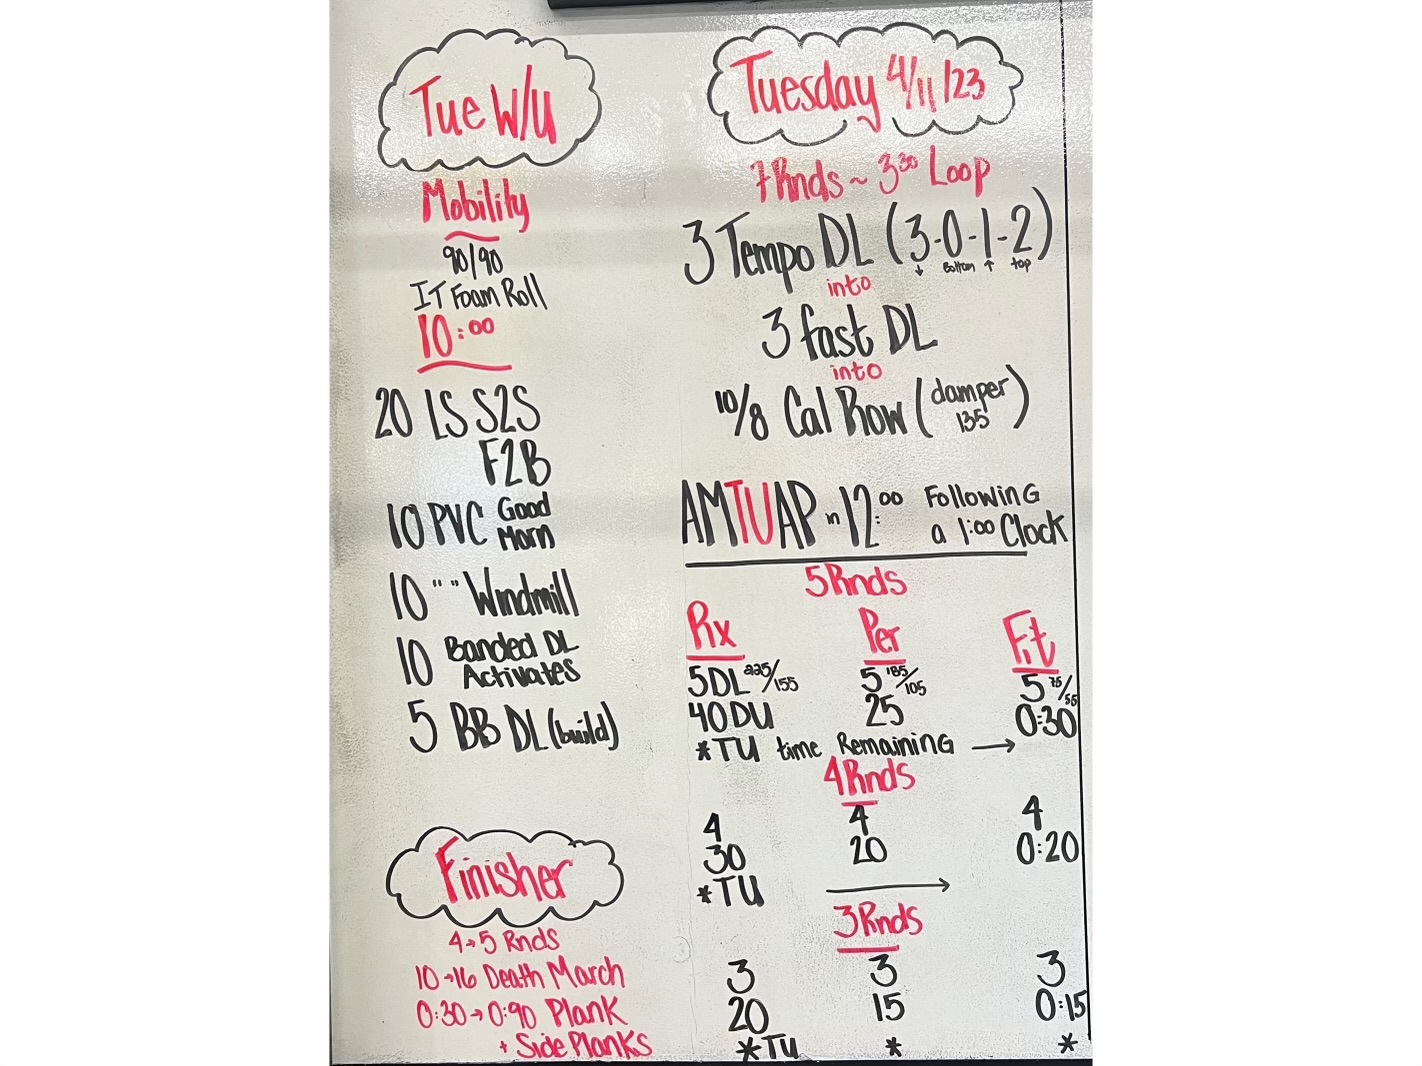 Tue W/U
Mobility
90/90
IT Foam Roll
10:00
20 LS S2S
F2B
10 PVC Good
Morn
10 " " Windmill
10 Banded DL
Activates
5 BB DL (build)
Finisher
4→5 Rnds
10→16 Death March
0:30→0:90 Plank
+ Side Planks
Tuesday 4/11/23
7 Rnds ~ 3:30 Loop
3 Tempo DL (3-0-1-2)
↓ Bottom ↑ top
into
3 fast DL
into
10/8 Cal Row (damper
135)
AMTUAP in 12:00 Following
a 1:00 Clock
5 Rnds
Rx Per Fit
5 DL 225/155 5 185/105 5 75/55
40 DU 25 0:30
*TU time Remaining →
4 Rnds
4 4 4
30 20 0:20
*TU →
3 Rnds
3 3 3
20 15 0:15
*TU * *